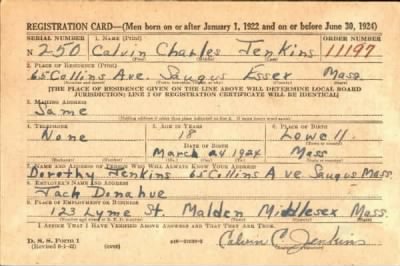 REGISTRATION CARD—(Men born on or after January 1, 1922 and on or before June 30, 1924)
SERIAL NUMBER 1. NAME (Print) ORDER NUMBER
N 250 Calvin Charles Jenkins 11197
(First) (Middle) (Last)
2. PLACE OF RESIDENCE (Print)
65 Collins Ave. Saugus Essex Mass
[THE PLACE OF RESIDENCE GIVEN ON THE LINE ABOVE WILL DETERMINE LOCAL BOARD
JURISDICTION; LINE 2 OF REGISTRATION CERTIFICATE WILL BE IDENTICAL]
3. MAILING ADDRESS
Same
4. TELEPHONE 5. AGE IN YEARS 6. PLACE OF BIRTH
None 18 Lowell
DATE OF BIRTH
March 24 1924 Mass
7. NAME AND ADDRESS OF PERSON WHO WILL ALWAYS KNOW YOUR ADDRESS
Dorothy Jenkins 65 Collins Ave Saugus Mass.
8. EMPLOYER'S NAME AND ADDRESS
Jack Donahue
9. PLACE OF EMPLOYMENT OR BUSINESS
123 Lyme St. Malden Middlesex Mass.
I AFFIRM THAT I HAVE VERIFIED ABOVE ANSWERS AND THAT THEY ARE TRUE.
D. S. S. Form 1
(Revised 6-1-42) (over)
Calvin C. Jenkins